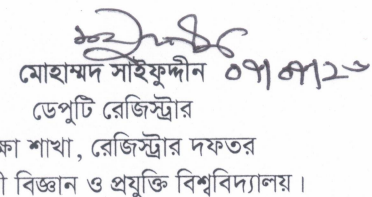 মোহাম্মদ সাইফুদ্দীন
ডেপুটি রেজিস্ট্রার
শাখা, রেজিস্ট্রার দফতর
বিজ্ঞান ও প্রযুক্তি বিশ্ববিদ্যালয়।